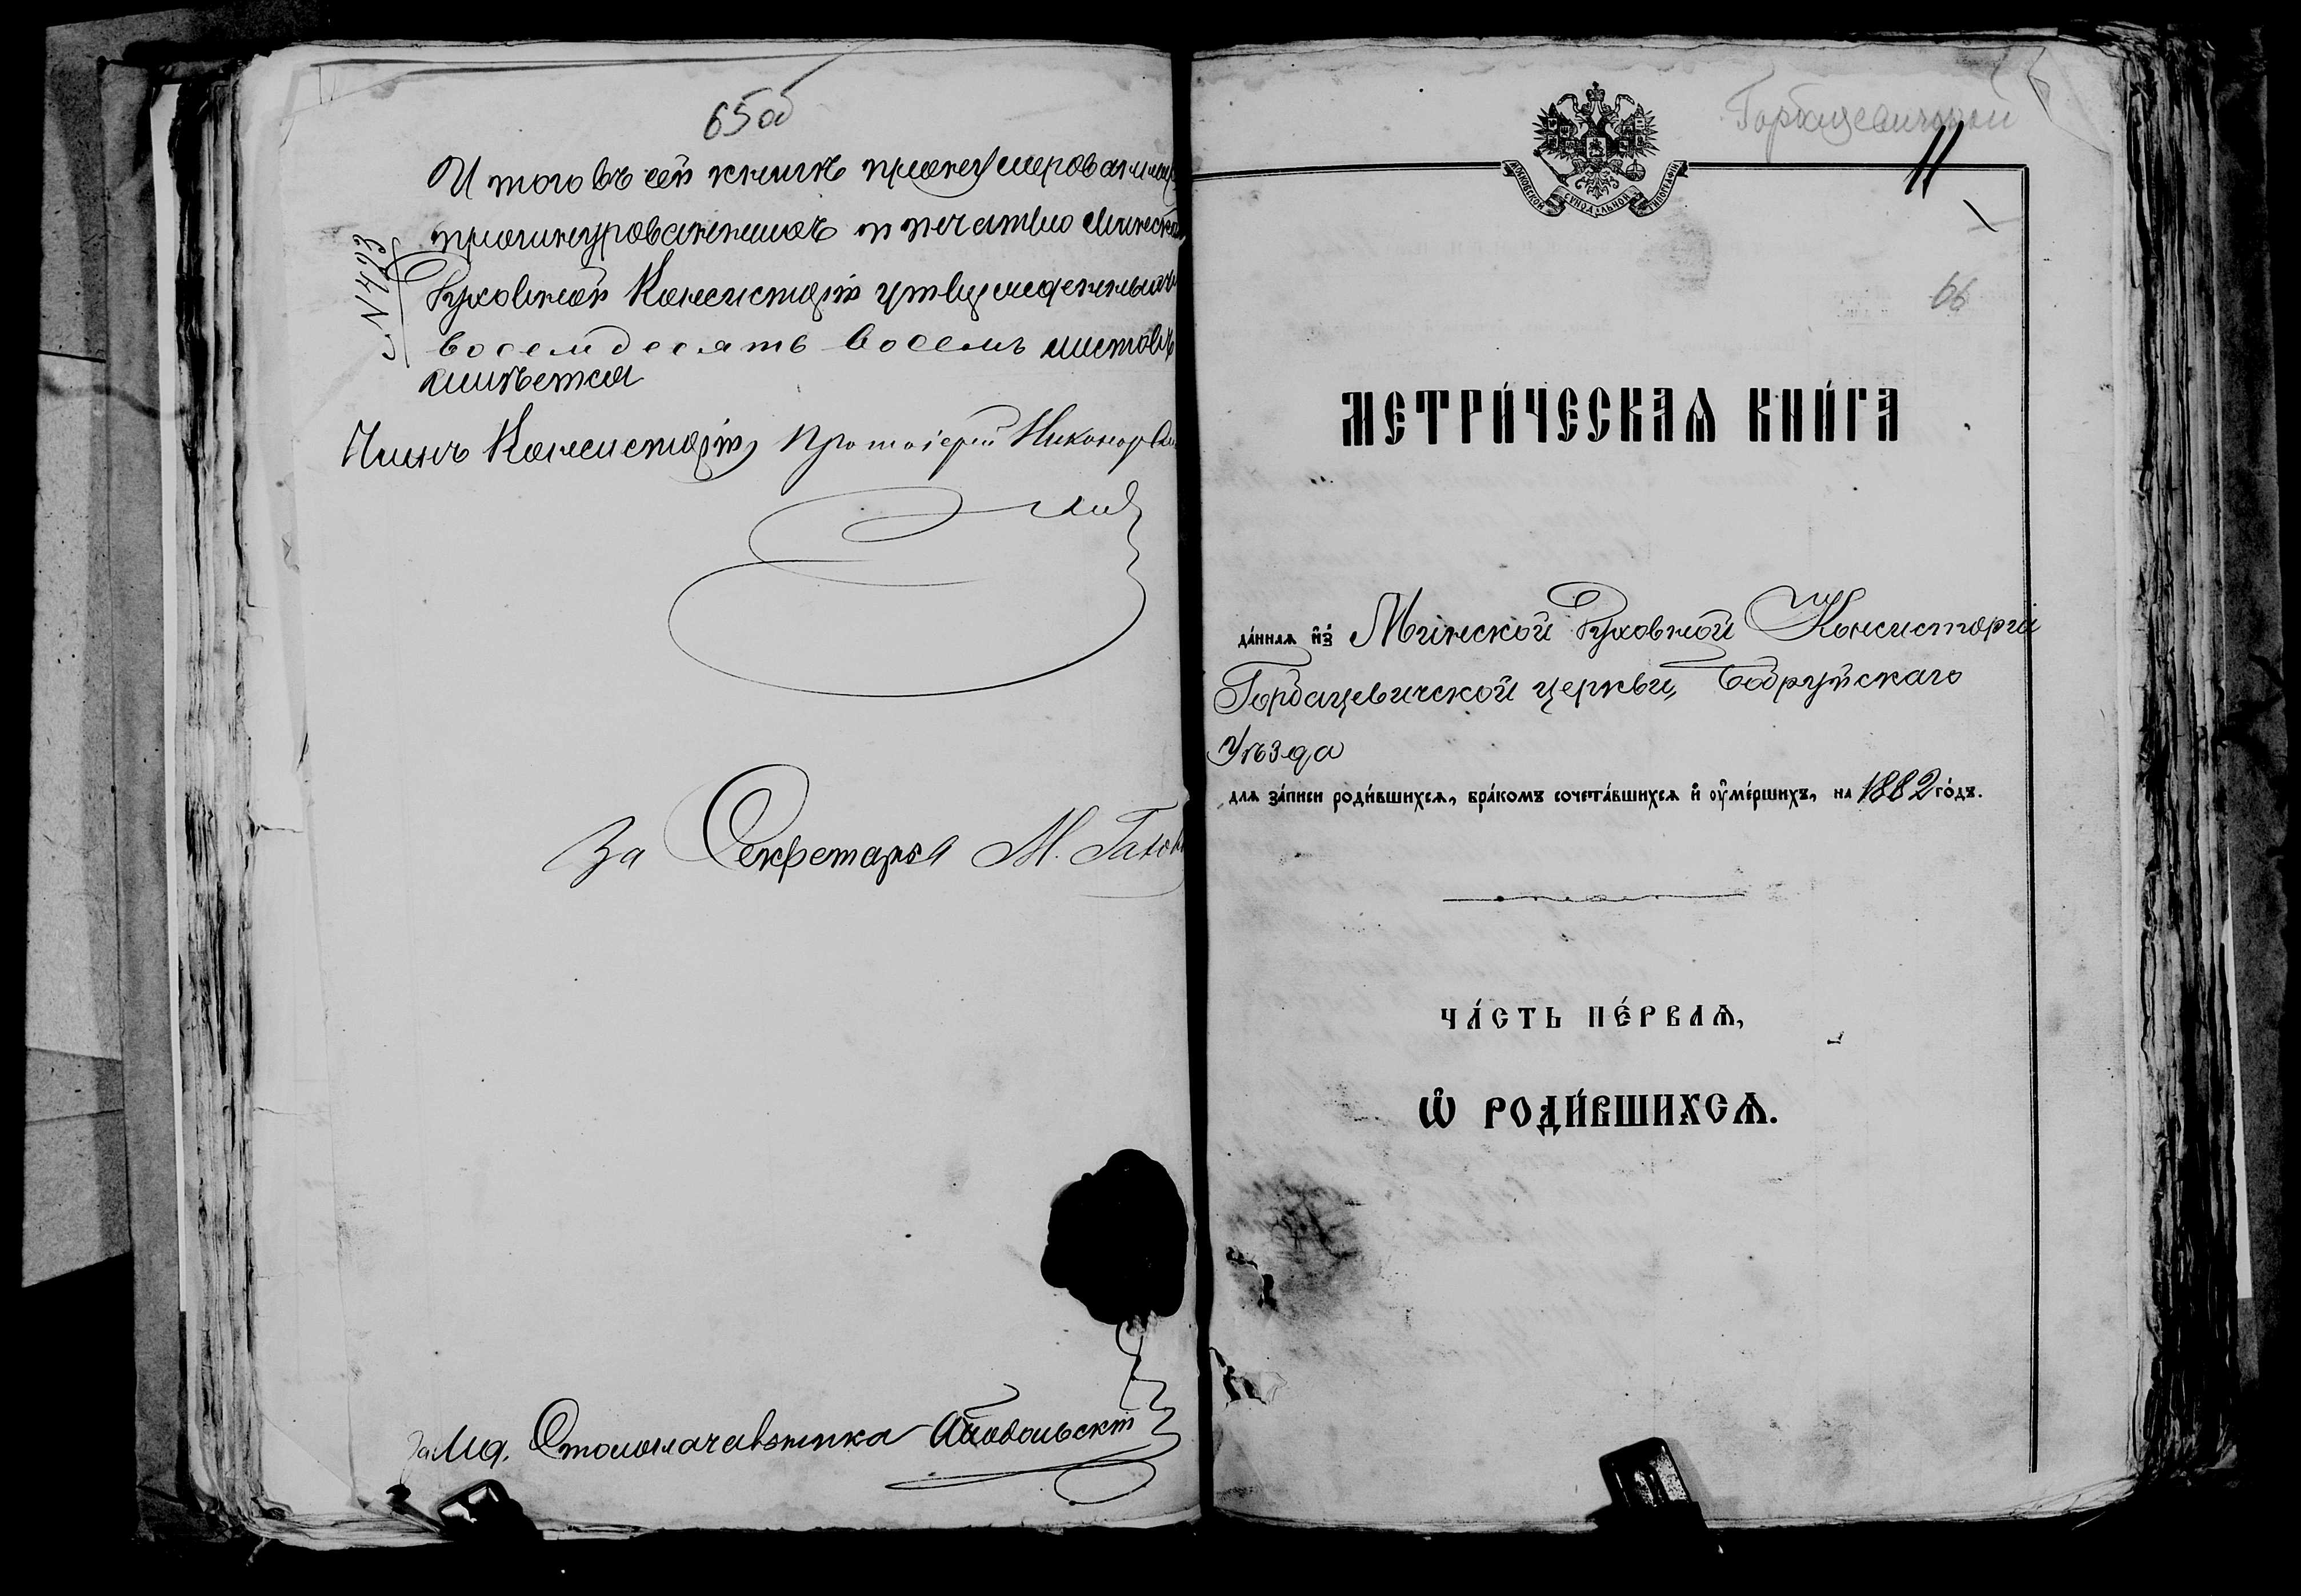 65 об
Итого въ сей книгѣ пронумерованныхъ
прошнурованныхъ и печатью Минской
№ 4493
Духовной Консисторіи утвержденныхъ
восемдесятъ восемь листовъ
имѣется
Членъ Консисторіи Протоіерей Никаноръ
За Секретаря М.
Столоначальника
Горбацевичской
11
66
МОСКОВСКОЙ СѴНОДАЛЬНОЙ ТИПОГРАФІИ
МЕТРИ́ЧЕСКАѦ КНИ́ГА
да́ннаѧ и҆з̾ Минской Духовной Консисторіи
Горбацевичской церкви, Бобруйскаго
Уѣзда
для за́писи роди́вшихсѧ, бра́комъ сочета́вшихсѧ и҆ ᲂу҆ме́ршихъ, на 1882 го́дъ.
ЧА́СТЬ ПЕ́РВАѦ,
Ѽ РОДИ́ВШИХСѦ.